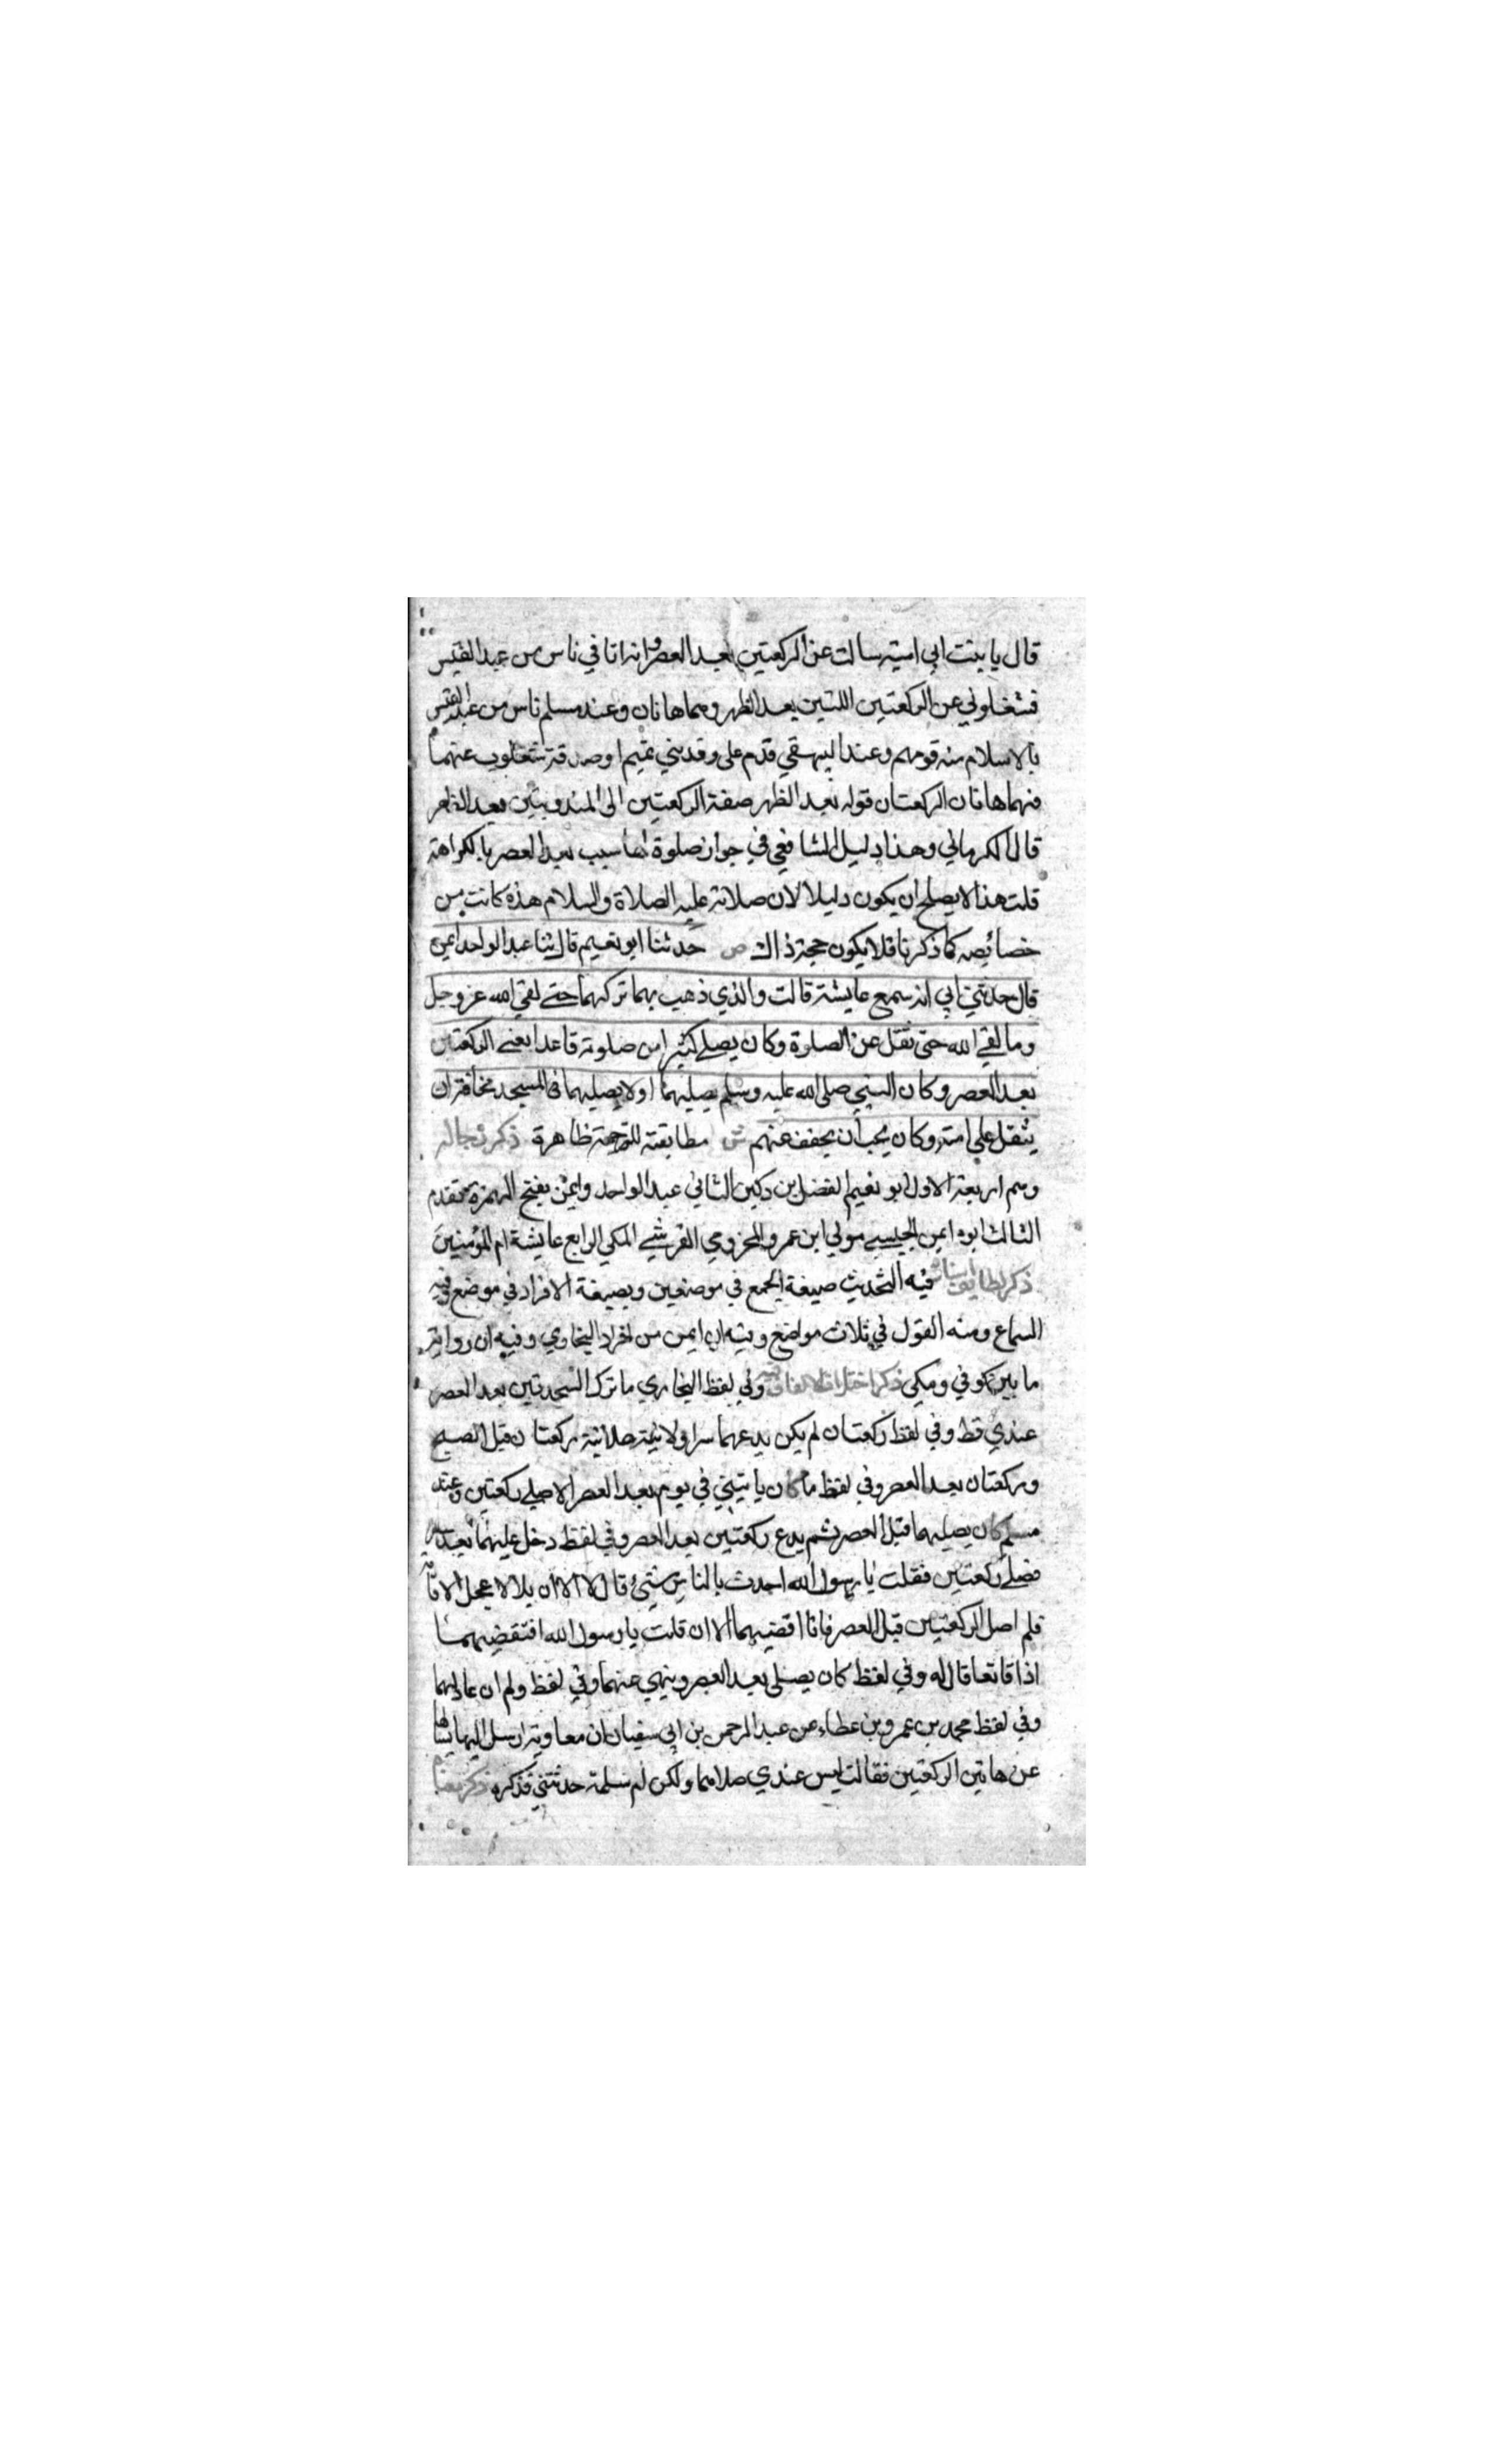 قال يا بنت ابي امية سالت عن الركعتين بعد العصر وانه اتاني ناس من عبد القيس
فشغلوني عن الركعتين اللتين بعد الظهر وهما هاتان وعند مسلم ناس من عبد القيس
بالاسلام من قومهم وعند البيهقي قدم على وفد بني تميم او صدقة شغلوني عنهما
فهما هاتان الركعتان قوله بعد الظهر صفة الركعتين الى المندوبتين بعد الظهر
قال الكرماني وهذا دليل الشافعي في جواز صلوة لها سبب بعد العصر بالكراهة
قلت هذا لا يصلح ان يكون دليلا لان صلاته عليه الصلاة والسلام هذه كانت من
خصائصه كما ذكرنا فلا يكون حجة ذاك ص حدثنا ابو نعيم قال ثنا عبد الواحد ايمن
قال حدثني ابي انه سمع عايشة قالت والذي ذهب بهما تركهما حتى لقي الله عز وجل
وما لقي الله حتى نقل عن الصلوة وكان يصلي كثيرا من صلوته قاعدا يعني الركعتين
بعد العصر وكان النبي صلى الله عليه وسلم يصليهما اولا يصليهما في المسجد مخافة ان
يثقل على امته وكان يحب ان يخفف عنهم ش مطابقته للترجمة ظاهرة ذكر رجاله
وهم اربعة الاول ابو نعيم الفضل بن دكين الثاني عبد الواحد وايمن بفتح الهمزة تقدم
الثالث ابوه ايمن الحبشي مولى ابن عمرو المخزومي القرشي المكي الرابع عايشة ام المؤمنين
ذكر لطايف اسناده فيه التحديث صيغة الجمع في موضعين وبصيغة الافراد في موضع وفيه
السماع ومنه القول في ثلاث مواضع وفيه ان ايمن من افراد البخاري وفيه ان رواته
ما بين كوفي ومكي ذكر اختلاف الفاظه فيه وفي لفظ البخاري ما ترك السجدتين بعد العصر
عندي قط وفي لفظ ركعتان لم يكن يدعهما سرا ولا علانية ركعتان قبل الصبح
وركعتان بعد العصر وفي لفظ ما كان ياتيني في يوم بعد العصر الا صلي ركعتين وعند
مسلم كان يصليهما قبل العصر ثم يدع ركعتين بعد العصر وفي لفظ دخل عليهما بعد
فصلى ركعتين فقلت يا رسول الله احدث بالناس شيئ قال لا الا ان بلالا عجل الاقامة
فلم اصل الركعتين قبل العصر فانا اقضيهما الان قلت يا رسول الله افنقضيهما
اذا فاتتا قال له وفي لفظ كان يصلي بعد العصر وينهي عنهما وفي لفظ ولم ان عاد لهما
وفي لفظ محمد بن عمرو بن عطاء عن عبد الرحمن بن ابي سفيان ان معاوية ارسل اليها يسالها
عن هاتين الركعتين فقالت ليس عندي صلاهما ولكن ام سلمة حدثتني فذكره ذكر معناه